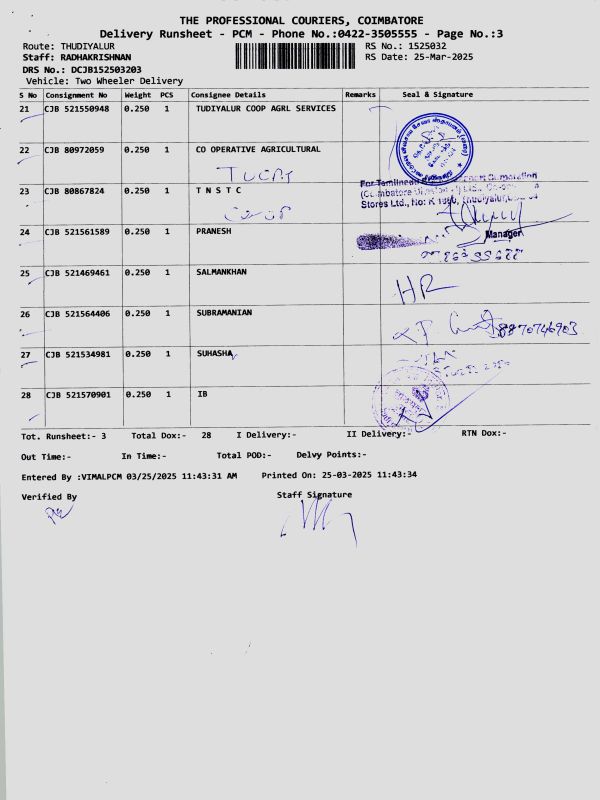 THE PROFESSIONAL COURIERS, COIMBATORE
Delivery Runsheet - PCM - Phone No.:0422-3505555 - Page No.:3
Route: THUDIYALUR RS No.: 1525032
Staff: RADHAKRISHNAN RS Date: 25-Mar-2025
DRS No.: DCJB152503203
Vehicle: Two Wheeler Delivery
S No Consignment No Weight PCS Consignee Details Remarks Seal & Signature
21 CJB 521550948 0.250 1 TUDIYALUR COOP AGRL SERVICES
22 CJB 80972059 0.250 1 CO OPERATIVE AGRICULTURAL
TUCAS
23 CJB 80867824 0.250 1 T N S T C
Stores Ltd., No: K 1660, Thudiyalur,
24 CJB 521561589 0.250 1 PRANESH
Manager
25 CJB 521469461 0.250 1 SALMANKHAN
HR
26 CJB 521564406 0.250 1 SUBRAMANIAN
8870746903
27 CJB 521534981 0.250 1 SUHASHA
28 CJB 521570901 0.250 1 IB
Tot. Runsheet:- 3 Total Dox:- 28 I Delivery:- II Delivery:- RTN Dox:-
Out Time:- In Time:- Total POD:- Delvy Points:-
Entered By :VIMALPCM 03/25/2025 11:43:31 AM Printed On: 25-03-2025 11:43:34
Verified By Staff Signature